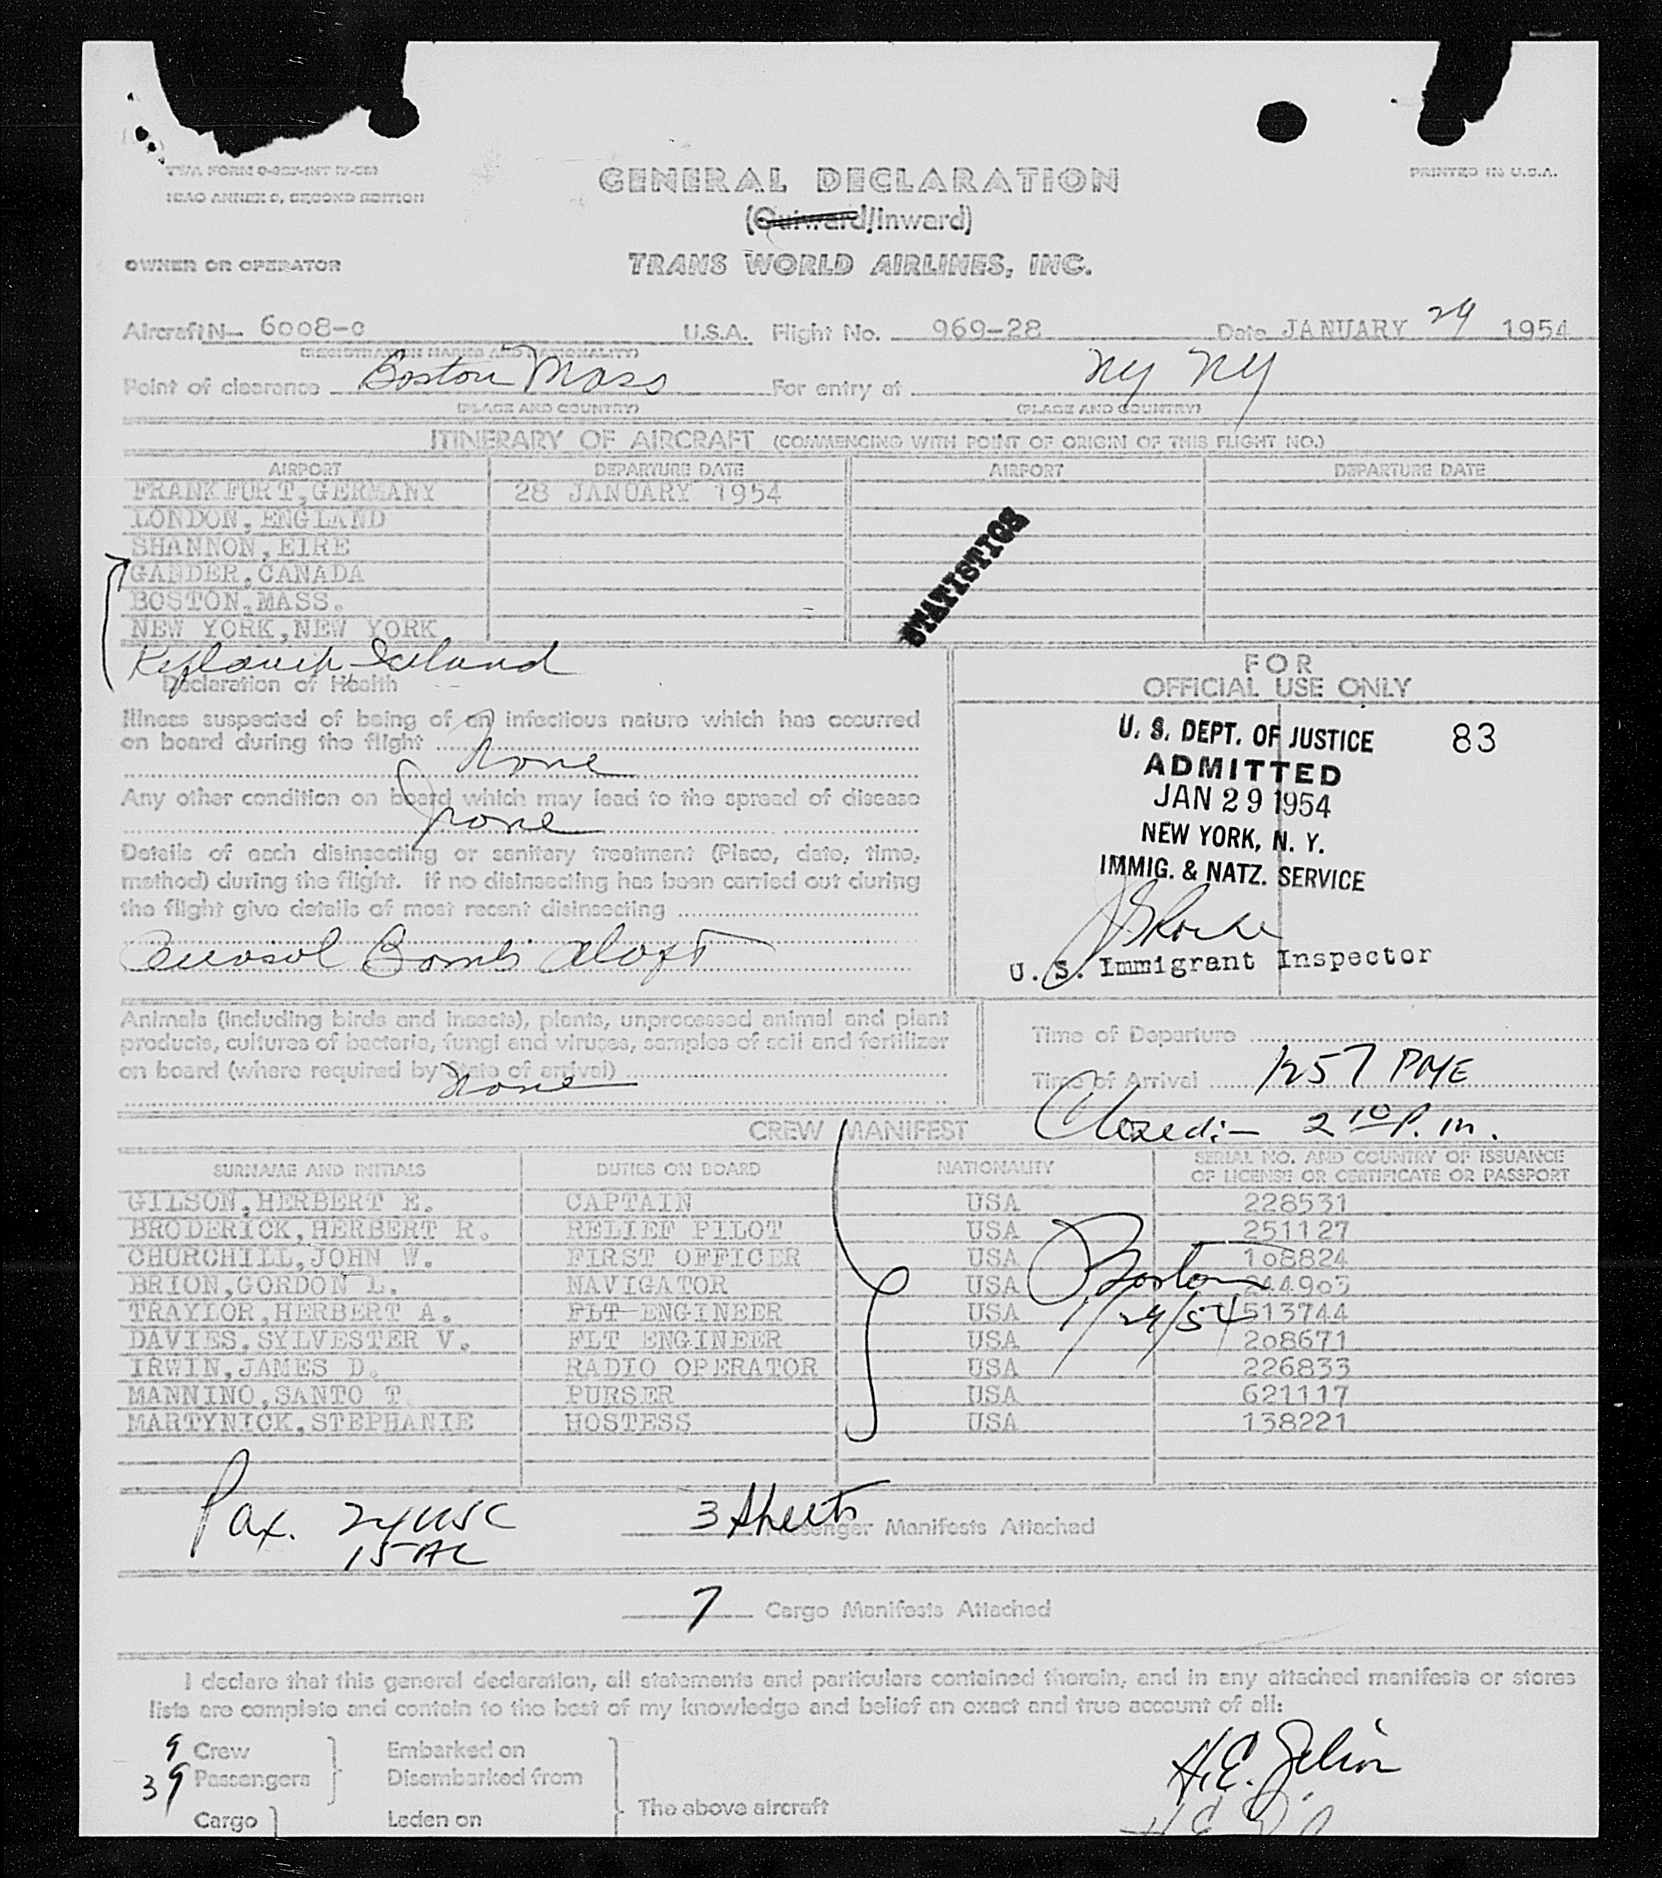 GENERAL DECLARATION
PRINTED IN U.S.A.
ICAO ANNEX 9, SECOND EDITION
(Outward/Inward)
OWNER OR OPERATOR TRANS WORLD AIRLINES, INC.
Aircraft N- 6008-c U.S.A. Flight No. 969-28 Date JANUARY 29 1954
(REGISTRATION MARKS AND NATIONALITY)
Point of clearance Boston Mass For entry at NY NY
(PLACE AND COUNTRY) (PLACE AND COUNTRY)
ITINERARY OF AIRCRAFT (COMMENCING WITH POINT OF ORIGIN OF THIS FLIGHT NO.)
AIRPORT DEPARTURE DATE AIRPORT DEPARTURE DATE
FRANKFURT,GERMANY 28 JANUARY 1954
LONDON, ENGLAND
SHANNON, EIRE
GANDER, CANADA
BOSTON, MASS.
NEW YORK, NEW YORK
STATISTICS
Keflavik, Iceland
Declaration of Health
Illness suspected of being of an infectious nature which has occurred
on board during the flight
None
Any other condition on board which may lead to the spread of disease
None
Details of each disinsecting or sanitary treatment (Place, date, time,
method) during the flight. If no disinsecting has been carried out during
the flight give details of most recent disinsecting
Aerosol Bombs Aloft
FOR
OFFICIAL USE ONLY
U. S. DEPT. OF JUSTICE 83
ADMITTED
JAN 29 1954
NEW YORK, N. Y.
IMMIG. & NATZ. SERVICE
U. S. Immigrant Inspector
Animals (including birds and insects), plants, unprocessed animal and plant
products, cultures of bacteria, fungi and viruses, samples of soil and fertilizer
on board (where required by State of arrival)
None
Time of Departure
Time of Arrival 1257 PME
Closed:- 2 10 P. m.
CREW MANIFEST
SURNAME AND INITIALS DUTIES ON BOARD NATIONALITY SERIAL NO. AND COUNTRY OF ISSUANCE
OF LICENSE OR CERTIFICATE OR PASSPORT
GILSON, HERBERT E. CAPTAIN USA 228531
BRODERICK, HERBERT R. RELIEF PILOT USA 251127
CHURCHILL, JOHN W. FIRST OFFICER USA 108824
BRION, GORDON L. NAVIGATOR USA 244903
TRAYLOR, HERBERT A. FLT ENGINEER USA 513744
DAVIES, SYLVESTER V. FLT ENGINEER USA 208671
IRWIN, JAMES D. RADIO OPERATOR USA 226833
MANNINO, SANTO T. PURSER USA 621117
MARTYNICK, STEPHANIE HOSTESS USA 138221
Boston
1/29/54
Pax. 24 USC
15 AL
3 sheets Passenger Manifests Attached
7 Cargo Manifests Attached
I declare that this general declaration, all statements and particulars contained therein, and in any attached manifests or stores
lists are complete and contain to the best of my knowledge and belief an exact and true account of all:
9 Crew Embarked on
39 Passengers Disembarked from
The above aircraft
Cargo Laden on
H.E. Gilson